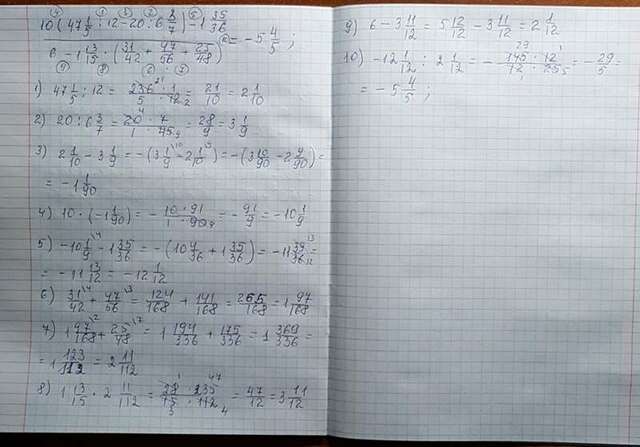 ④ ① ③ ② ⑤
10(47 1/5 : 12 - 20 : 6 3/7) - 1 35/36
6 - 1 13/15 · (31/42 + 47/56 + 25/48) = -5 4/5 ;
1) 47 1/5 : 12 = 236 · 1 / 5 · 12 = 21/10 = 2 1/10
2) 20 : 6 3/7 = 20 · 7 / 1 · 45 = 28/9 = 3 1/9
3) 2 1/10 - 3 1/9 = -(3 1/9 - 2 1/10) = -(3 10/90 - 2 9/90) =
= -1 1/90
4) 10 · (-1 1/90) = - 10 · 91 / 1 · 90 = - 91/9 = -10 1/9
5) -10 1/9 - 1 35/36 = -(10 4/36 + 1 35/36) = -11 39/36 =
= -11 13/12 = -12 1/12
6) 31/42 + 47/56 = 124/168 + 141/168 = 265/168 = 1 97/168
7) 1 97/168 + 25/48 = 1 194/336 + 175/336 = 1 369/336 =
= 1 123/112 = 2 11/112
8) 1 13/15 · 2 11/112 = 28 · 235 / 15 · 112 = 47/12 = 3 11/12
9) 6 - 3 11/12 = 5 12/12 - 3 11/12 = 2 1/12
10) -12 1/12 : 2 1/12 = - 145 · 12 / 12 · 25 = - 29/5 =
= -5 4/5 ;